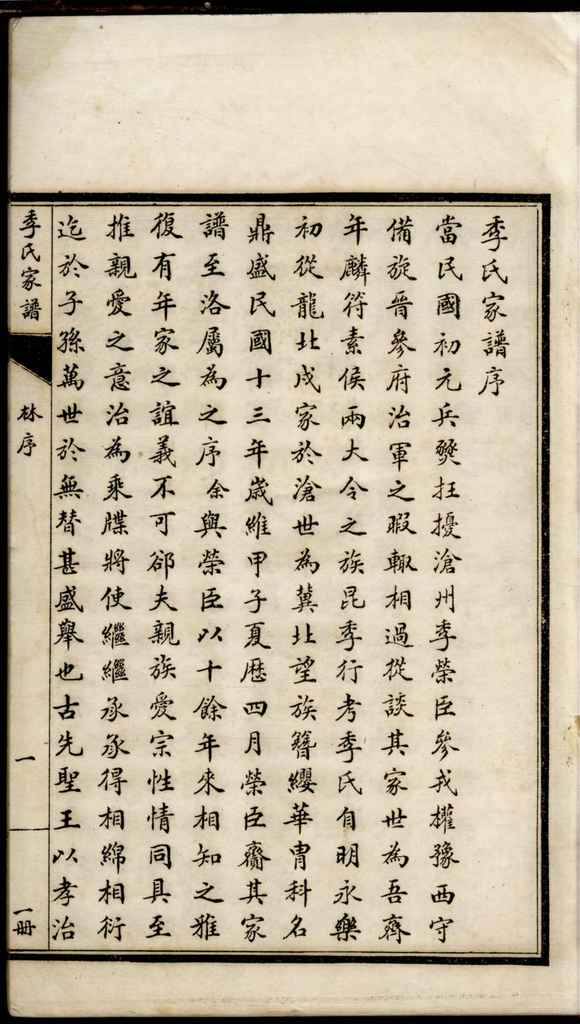 季氏家譜序
當民國初元兵燹抂擾滄州季榮臣參戎權豫西守
備旋晉參府治軍之暇輙相過從談其家世為吾齊
年麟符素侯兩大令之族昆季行考季氏自明永樂
初從龍北戍家於滄世為冀北望族簪纓華胄科名
鼎盛民國十三年歲維甲子夏歷四月榮臣齎其家
譜至洛屬為之序余與榮臣以十餘年來相知之雅
復有年家之誼義不可郤夫親族愛宗性情同具至
推親愛之意治為乘牒將使繼繼承承得相綿相衍
迄於子孫萬世於無替甚盛舉也古先聖王以孝治
季氏家譜
林序
一
一冊